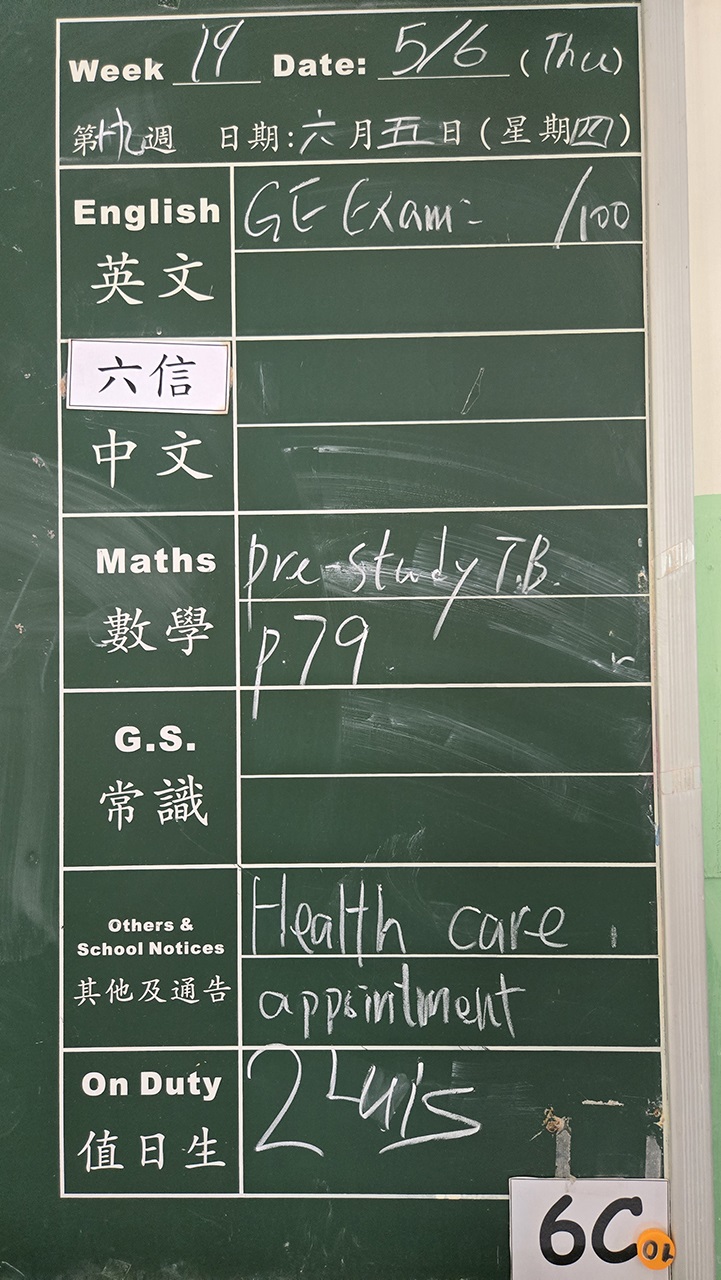 Week 19 Date: 5/6 (Thu)
第十九週 日期:六月五日(星期四)
English
英文
GE Exam: /100
六信
中文
Maths
數學
pre-study T.B.
p.79
G.S.
常識
Others &
School Notices
其他及通告
Health care
appointment
On Duty
值日生
2
6C